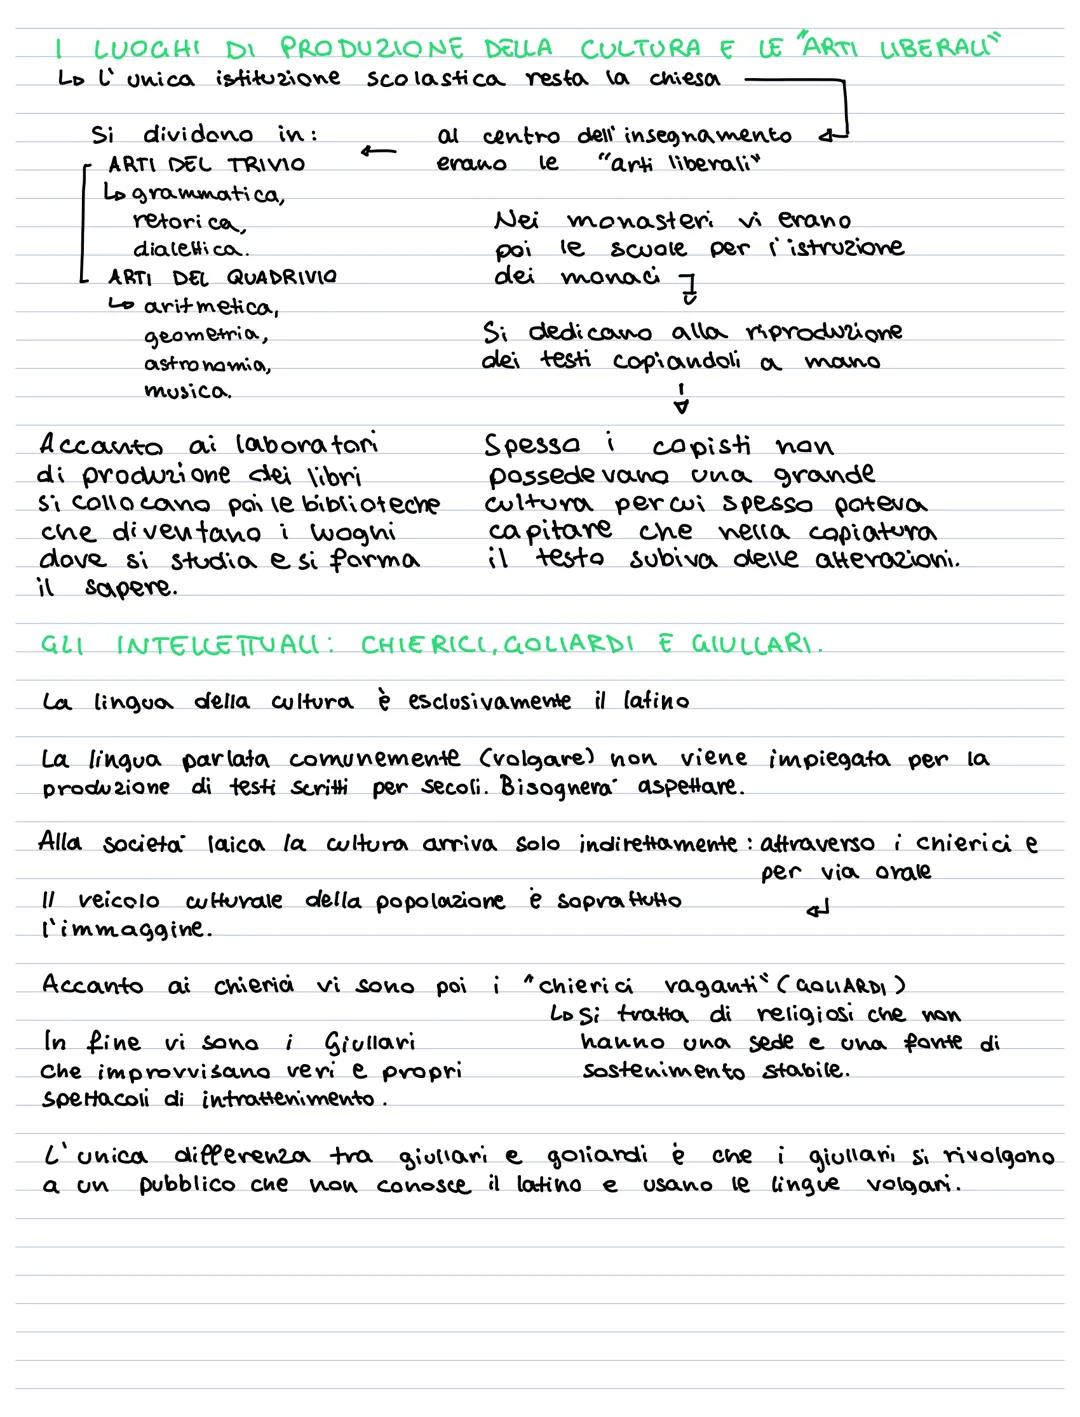 I LUOGHI DI PRODUZIONE DELLA CULTURA E LE "ARTI LIBERALI"
↳ L'unica istituzione scolastica resta la chiesa
al centro dell'insegnamento
erano le "arti liberali"
Si dividono in:
ARTI DEL TRIVIO
↳ grammatica,
retorica,
dialettica.
ARTI DEL QUADRIVIO
↳ aritmetica,
geometria,
astronomia,
musica.
Nei monasteri vi erano
poi le scuole per l'istruzione
dei monaci
Si dedicano alla riproduzione
dei testi copiandoli a mano
Spesso i copisti non
possedevano una grande
cultura per cui spesso poteva
capitare che nella copiatura
il testo subiva delle alterazioni.
Accanto ai laboratori
di produzione dei libri
si collocano poi le biblioteche
che diventano i luoghi
dove si studia e si forma
il sapere.
GLI INTELLETTUALI: CHIERICI, GOLIARDI E GIULLARI.
La lingua della cultura è esclusivamente il latino
La lingua parlata comunemente (volgare) non viene impiegata per la
produzione di testi scritti per secoli. Bisognerà aspettare.
Alla società laica la cultura arriva solo indirettamente: attraverso i chierici e
per via orale
Il veicolo culturale della popolazione è soprattutto
l'immaggine.
Accanto ai chierici vi sono poi i "chierici vaganti" (GOLIARDI)
↳ Si tratta di religiosi che non
hanno una sede e una fonte di
sostenimento stabile.
In fine vi sono i Giullari
che improvvisano veri e propri
spettacoli di intrattenimento.
L'unica differenza tra giullari e goliardi è che i giullari si rivolgono
a un pubblico che non conosce il latino e usano le lingue volgari.